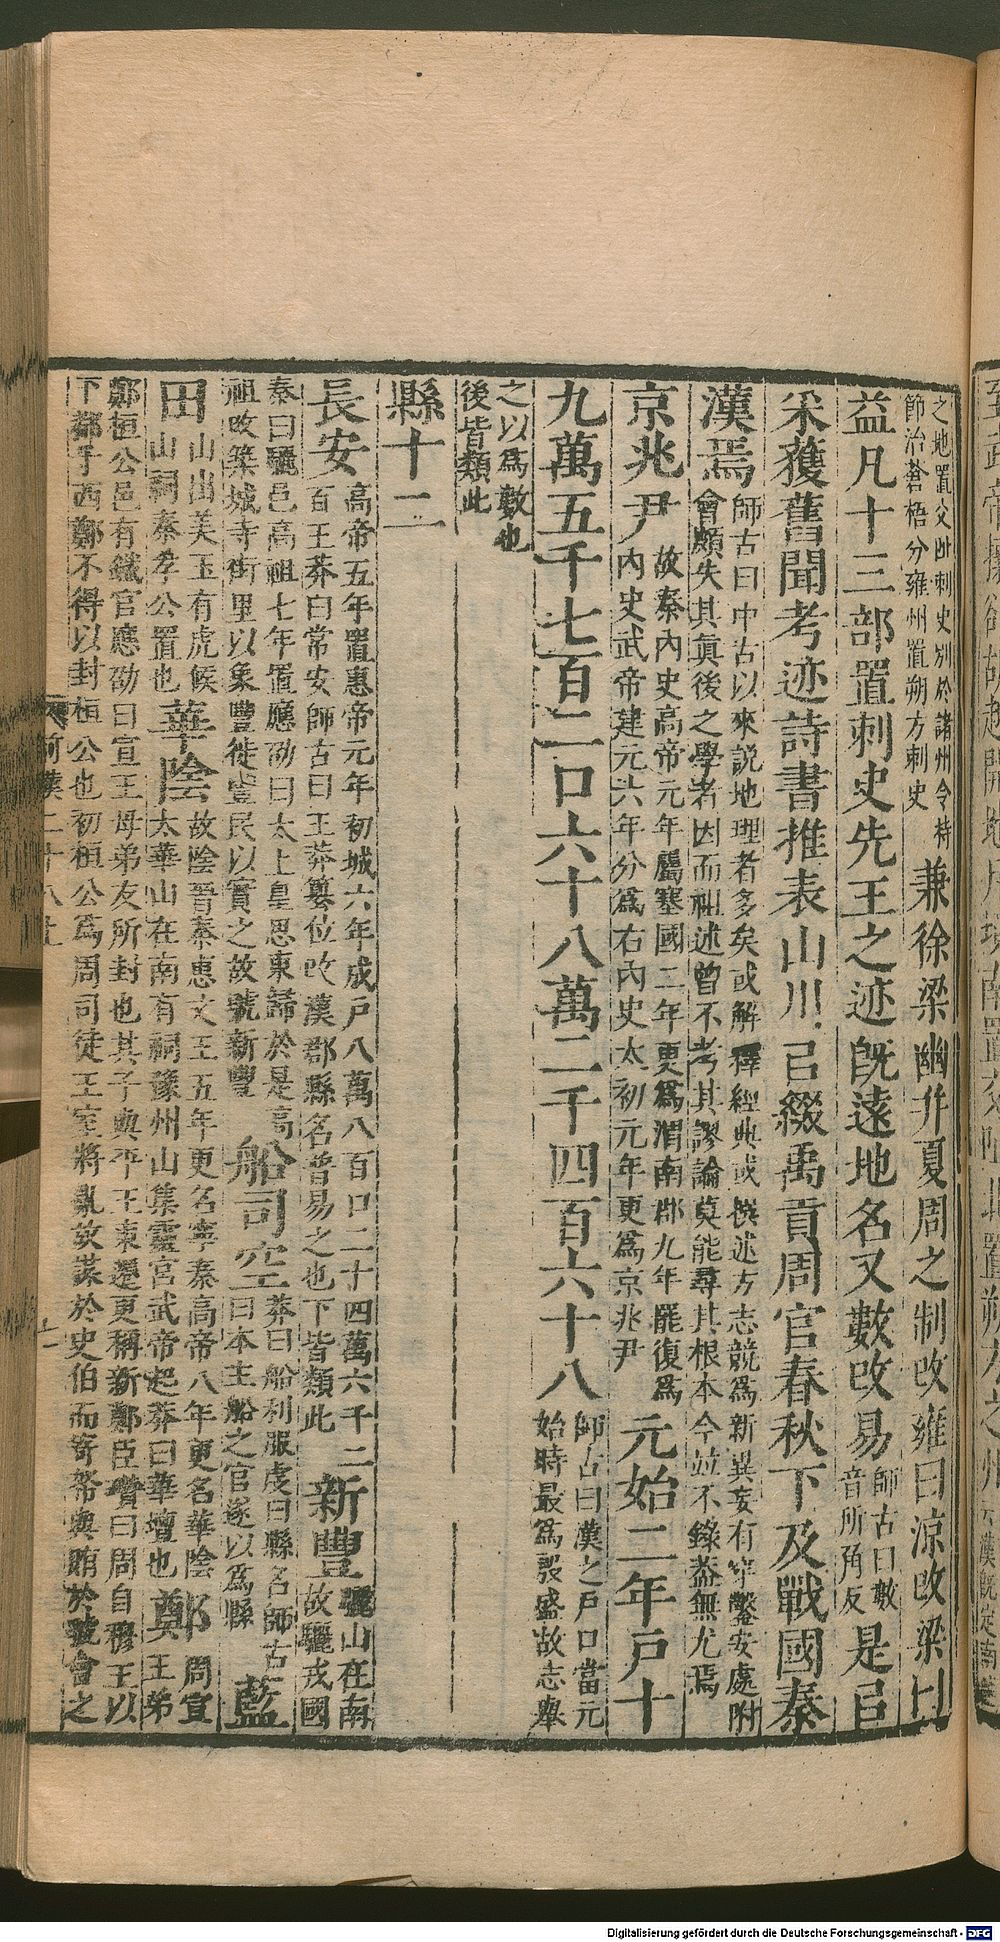 之地置交阯刺史别於諸州令持
節治蒼梧分雍州置朔方刺史
兼徐梁幽并夏周之制改雍曰涼改梁曰
益凡十三部置刺史先王之迹旣遠地名又數改易
師古曰數
音所角反
是㠯
采獲舊聞考迹詩書推表山川㠯綴禹貢周官春秋下及戰國秦
漢焉
師古曰中古以來説地理者多矣或解釋經典或撰述方志競爲新異妄有穿鑿安處附
會頗失其眞後之學者因而祖述曾不考其謬論莫能尋其根本今竝不錄葢無尤焉
京兆尹
故秦內史高帝元年屬塞國二年更爲渭南郡九年罷復爲
內史武帝建元六年分爲右內史太初元年更爲京兆尹
元始二年戸十
九萬五千七百二口六十八萬二千四百六十八
師古曰漢之戸口當元
始時最爲殷盛故志舉
之以爲數也
後皆類此
縣十二
長安
高帝五年置惠帝元年初城六年成戸八萬八百口二十四萬六千二
百王莽曰常安師古曰王莽簒位改漢郡縣名普易之也下皆類此
新豐
驪山在南
故驪戎國
秦曰驪邑高祖七年置應劭曰太上皇思東歸於是高
祖改築城寺街里以象豐徙豐民以實之故號新豐
船司空
莽曰船利服虔曰縣名師古
曰本主船之官遂以爲縣
藍
田
山出美玉有虎候
山祠秦孝公置也
華陰
故陰晉秦惠文王五年更名寧秦高帝八年更名華陰
太華山在南有祠豫州山集靈宮武帝起莽曰華壇也
鄭
周宣
王弟
鄭桓公邑有鐵官應劭曰宣王母弟友所封也其子與平王東遷更稱新鄭臣瓚曰周自穆王以
下都于西鄭不得以封桓公也初桓公爲周司徒王室將亂故謀於史伯而寄帑與賄於虢會之
前漢二十八上
Digitalisierung gefördert durch die Deutsche Forschungsgemeinschaft - DFG